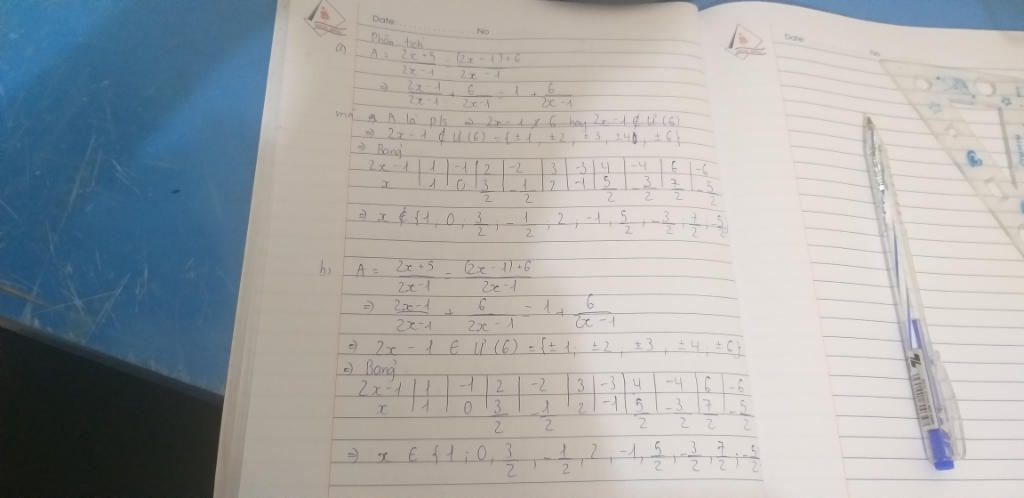 Date:
No
Phân tích
a) A = 2x+5/2x-1 = (2x-1)+6/2x-1
⇒ 2x-1/2x-1 + 6/2x-1 = 1 + 6/2x-1
mà A là p/s ⇒ 2x-1 ⋮̸ 6 hay 2x-1 ∉ Ư(6)
⇒ 2x-1 ∉ Ư(6) = {±1, ±2, ±3, ±4, ±6}
⇒ Bảng
2x-1 | 1 | -1 | 2 | -2 | 3 | -3 | 4 | -4 | 6 | -6
x | 1 | 0 | 3/2 | -1/2 | 2 | -1 | 5/2 | -3/2 | 7/2 | -5/2
⇒ x ∉ {1, 0, 3/2, -1/2, 2, -1, 5/2, -3/2, 7/2, -5/2
b) A = 2x+5/2x-1 = (2x-1)+6/2x-1
⇒ 2x-1/2x-1 + 6/2x-1 = 1 + 6/2x-1
⇒ 2x-1 ∈ Ư(6) = {±1, ±2, ±3, ±4, ±6}
⇒ Bảng
2x-1 | 1 | -1 | 2 | -2 | 3 | -3 | 4 | -4 | 6 | -6
x | 1 | 0 | 3/2 | -1/2 | 2 | -1 | 5/2 | -3/2 | 7/2 | -5/2
⇒ x ∈ {1; 0, 3/2, -1/2, 2, -1, 5/2, -3/2, 7/2; -5/2
Date:
No